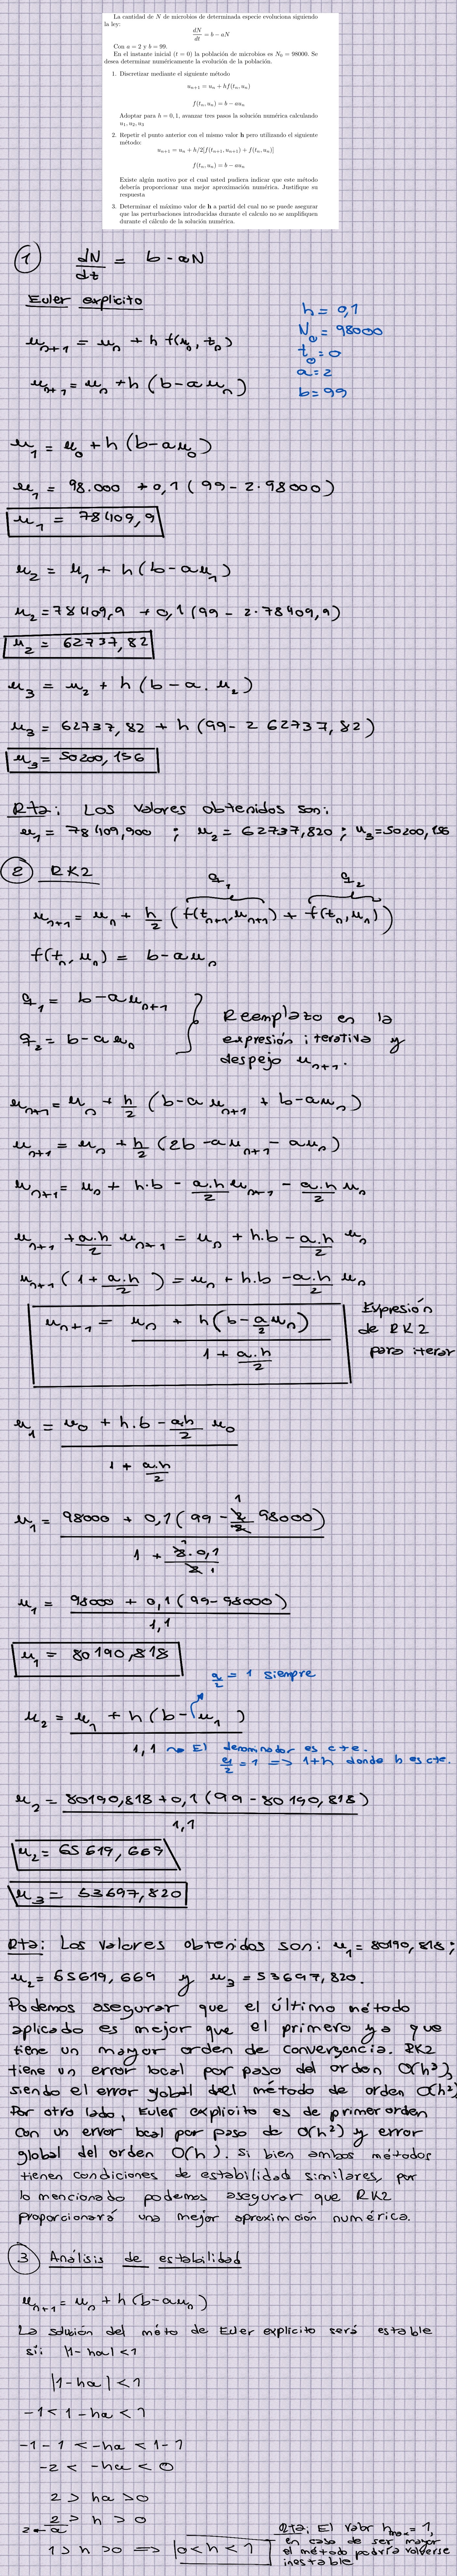 La cantidad de N de microbios de determinada especie evoluciona siguiendo
la ley:
dN/dt = b − aN
Con a = 2 y b = 99.
En el instante inicial (t = 0) la población de microbios es N₀ = 98000. Se
desea determinar numéricamente la evolución de la población.
1. Discretizar mediante el siguiente método
uₙ₊₁ = uₙ + hf(tₙ, uₙ)
f(tₙ, uₙ) = b − auₙ
Adoptar para h = 0,1, avanzar tres pasos la solución numérica calculando
u₁, u₂, u₃
2. Repetir el punto anterior con el mismo valor h pero utilizando el siguiente
método:
uₙ₊₁ = uₙ + h/2[f(tₙ₊₁, uₙ₊₁) + f(tₙ, uₙ)]
f(tₙ, uₙ) = b − auₙ
Existe algún motivo por el cual usted pudiera indicar que este método
debería proporcionar una mejor aproximación numérica. Justifique su
respuesta
3. Determinar el máximo valor de h a partid del cual no se puede asegurar
que las perturbaciones introducidas durante el calculo no se amplifiquen
durante el cálculo de la solución numérica.
① dN/dt = b - aN
Euler explícito
uₙ₊₁ = uₙ + h f(uₙ, tₙ)
uₙ₊₁ = uₙ + h (b - a uₙ)
h = 0,1
N₀ = 98000
t₀ = 0
a = 2
b = 99
u₁ = u₀ + h (b - a u₀)
u₁ = 98.000 + 0,1 (99 - 2·98000)
u₁ = 78409,9
u₂ = u₁ + h (b - a u₁)
u₂ = 78409,9 + 0,1 (99 - 2·78409,9)
u₂ = 62737,82
u₃ = u₂ + h (b - a. u₂)
u₃ = 62737,82 + h (99 - 2 62737,82)
u₃ = 50200,156
Rta: Los valores obtenidos son:
u₁ = 78409,900 ; u₂ = 62737,820 ; u₃ = 50200,156
② RK2
q₁ q₂
uₙ₊₁ = uₙ + h/2 (f(tₙ₊₁, uₙ₊₁) + f(tₙ, uₙ))
f(tₙ, uₙ) = b - a uₙ
q₁ = b - a uₙ₊₁
q₂ = b - a uₙ
Reemplazo en la
expresión iterativa y
despejo uₙ₊₁.
uₙ₊₁ = uₙ + h/2 (b - a uₙ₊₁ + b - a uₙ)
uₙ₊₁ = uₙ + h/2 (2b - a uₙ₊₁ - a uₙ)
uₙ₊₁ = uₙ + h.b - a.h/2 uₙ₊₁ - a.h/2 uₙ
uₙ₊₁ + a.h/2 uₙ₊₁ = uₙ + h.b - a.h/2 uₙ
uₙ₊₁ (1 + a.h/2) = uₙ + h.b - a.h/2 uₙ
uₙ₊₁ = uₙ + h(b - a/2 uₙ) / 1 + a.h/2
Expresión
de RK2
para iterar
u₁ = u₀ + h.b - a.h/2 u₀ / 1 + a.h/2
u₁ = 98000 + 0,1 (99 - 2/2 98000) / 1 + 2.0,1/2
u₁ = 98000 + 0,1 (99 - 98000) / 1,1
u₁ = 80190,818
a/2 = 1 siempre
u₂ = u₁ + h (b - u₁) / 1,1
El denominador es cte.
a/2 = 1 => 1+h donde h es cte.
u₂ = 80190,818 + 0,1 (99 - 80190,818) / 1,1
u₂ = 65619,669
u₃ = 53697,820
Rta: Los valores obtenidos son: u₁ = 80190,818;
u₂ = 65619,669 y u₃ = 53697,820.
Podemos asegurar que el último método
aplicado es mejor que el primero ya que
tiene un mayor orden de convergencia. RK2
tiene un error local por paso del orden O(h³),
siendo el error global del método de orden O(h²)
Por otro lado, Euler explícito es de primer orden
con un error local por paso de O(h²) y error
global del orden O(h). Si bien ambos métodos
tienen condiciones de estabilidad similares, por
lo mencionado podemos asegurar que RK2
proporcionará una mejor aproximción numérica.
③ Análisis de estabilidad
uₙ₊₁ = uₙ + h (b - a uₙ)
La solución del méto de Euler explícito será estable
sii: |1 - ha| < 1
|1 - ha| < 1
-1 < 1 - ha < 1
-1 - 1 < -ha < 1 - 1
-2 < -ha < 0
2 > ha > 0
2 ← 2/a > h > 0
1 > h > 0 => 0 < h < 1
Rta: El valor hₘₐₓ = 1,
en caso de ser mayor
el método podría volverse
inestable